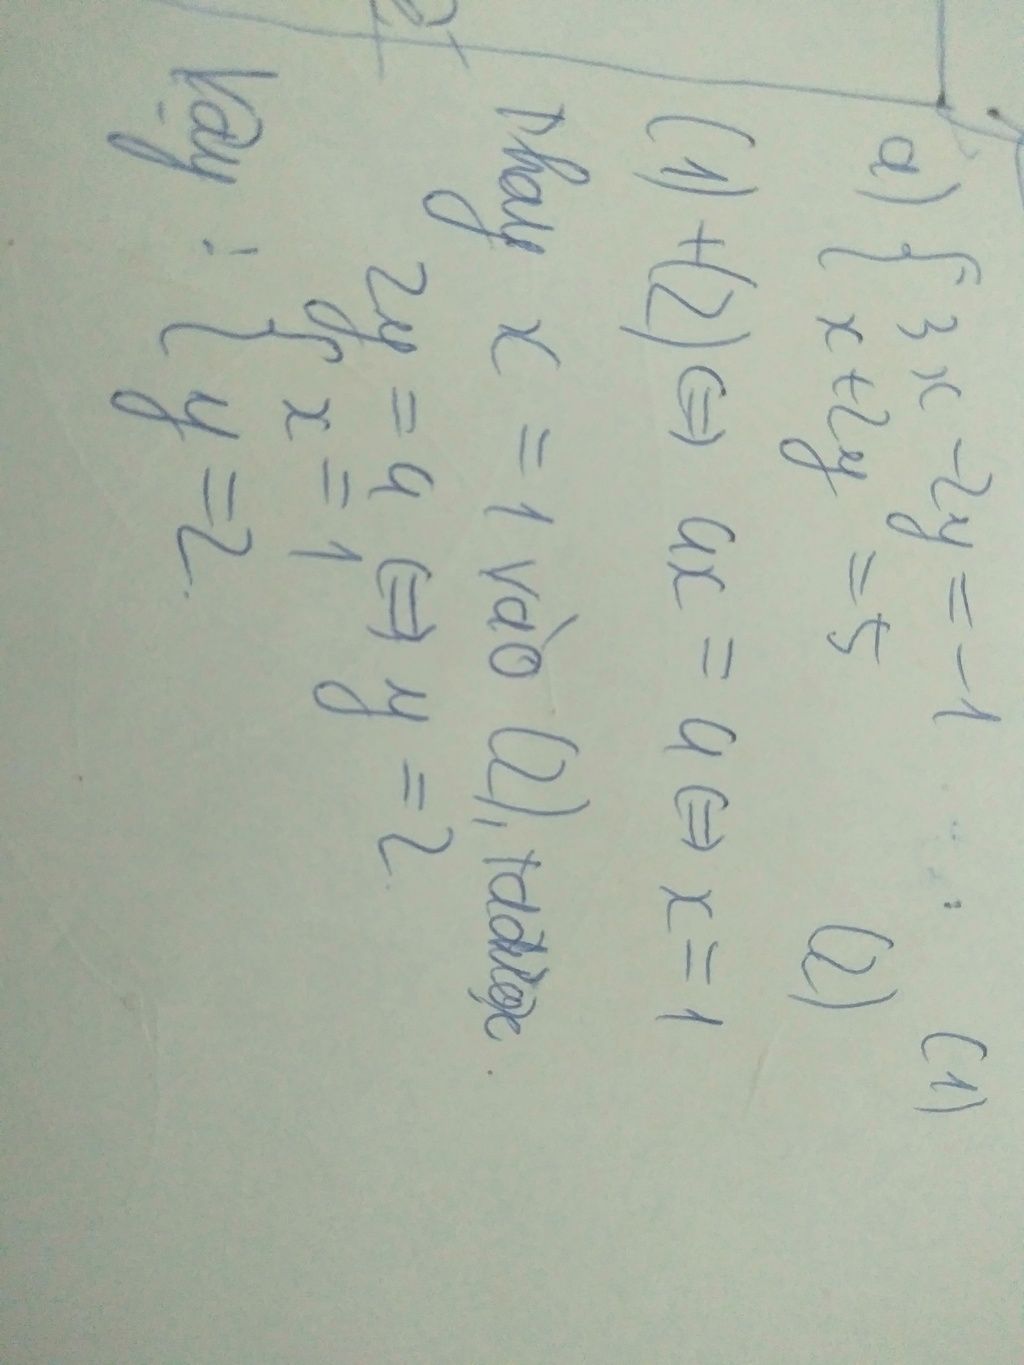 a) { 3x - 2y = -1 (1)
x + 2y = 5 (2)
(1) + (2) ⇔ 4x = 4 ⇔ x = 1
Thay x = 1 vào (2), ta được
2y = 4 ⇔ y = 2
Vậy : { x = 1
y = 2.